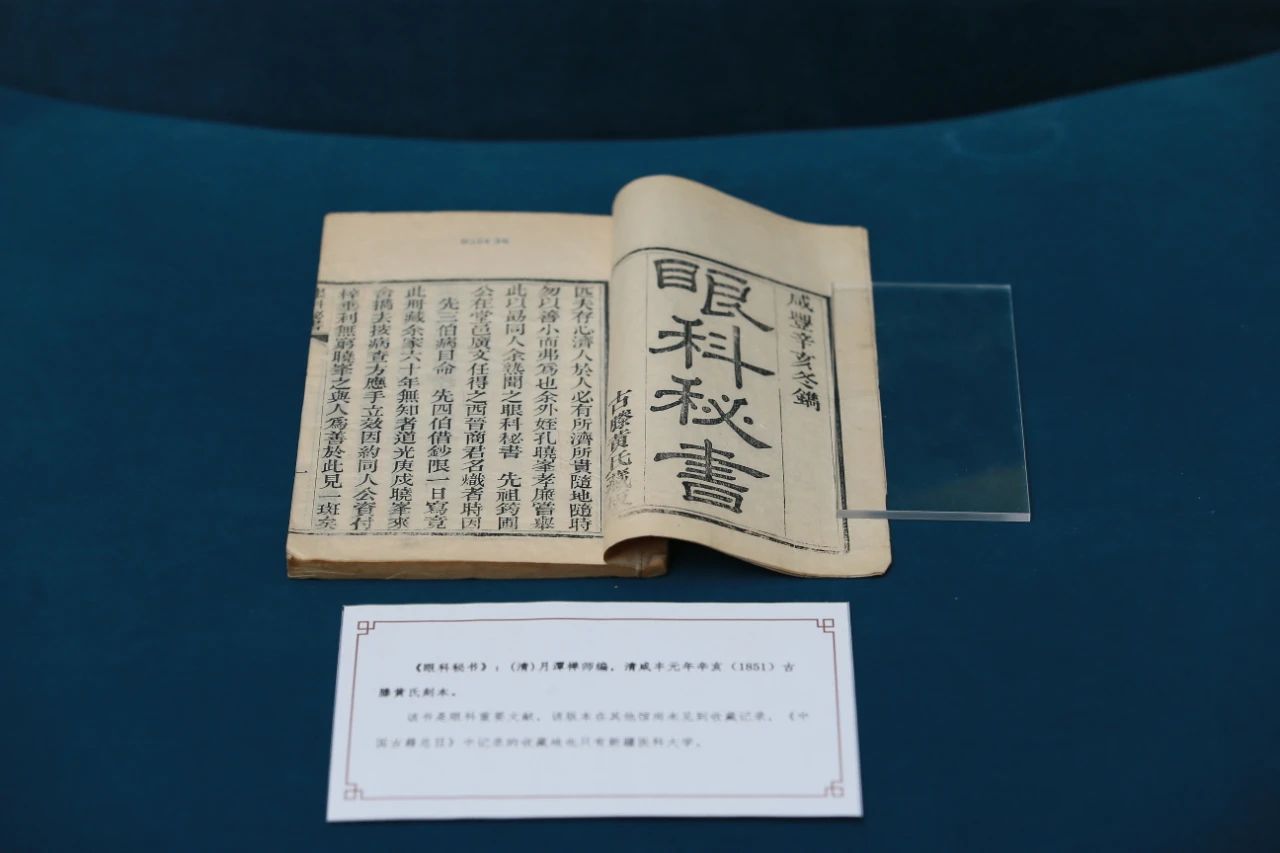 咸豐辛亥冬鐫
眼科秘書
古滕黃氏藏
匹夫存心濟人於人必有所濟所貴隨地隨時
勿以善小而弗爲也余外姪孔曉峯孝廉嘗舉
此以勗同人余熟聞之眼科秘書 先祖筠圃
公在堂邑廣文任得之西晉商君名熾者時因
先三伯病目命 先四伯借鈔限一日寫竟
此冊藏余家六十年無知者道光庚戌曉峯來
舍攜去按病查方應手立效因約同人公資付
梓垂利無窮曉峯之與人爲善於此見一斑矣
《眼科秘书》：(清)月潭禅师编，清咸丰元年辛亥（1851）古
滕黄氏刻本。
该书是眼科重要文献，该版本在其他馆尚未见到收藏记录，《中
国古籍总目》中记录的收藏地也只有新疆医科大学。